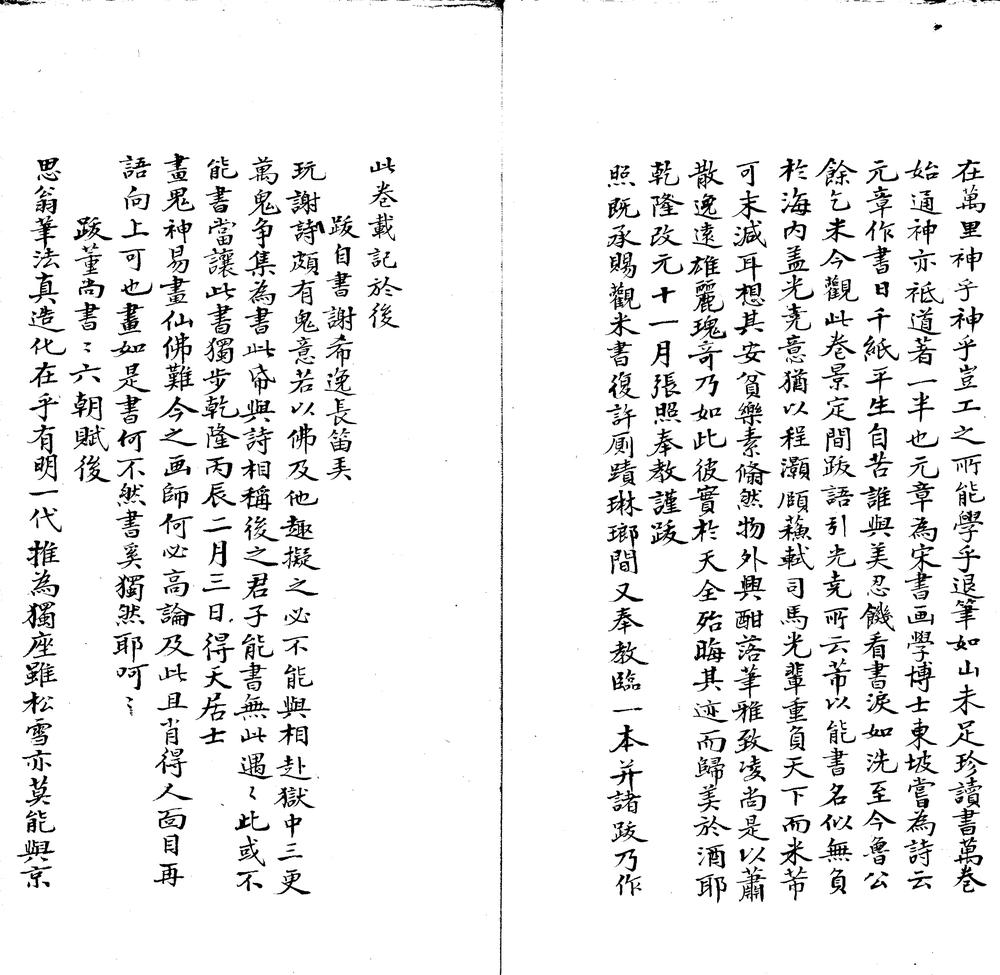 在萬里神乎神乎豈工之所能學乎退筆如山未足珍讀書萬卷
始通神亦祗道著一半也元章為宋書画學博士東坡嘗為詩云
元章作書日千紙平生自苦誰與美忍饑看書淚如洗至今魯公
餘乞米今觀此卷景定間跋語引光堯所云芾以能書名似無負
於海內盖光堯意猶以程灝頤蘓軾司馬光輩重負天下而米芾
可末減耳想其安貧樂素翛然物外興酣落筆雅致凌尚是以蕭
散逸遠雄麗瑰竒乃如此彼實於天全殆晦其迹而歸美於酒耶
乾隆改元十一月張照奉教謹跋
照既承賜觀米書復許厠蹟琳瑯間又奉教臨一本并諸跋乃作
此卷載記於後
跋自書謝希逸長笛美
玩謝詩頗有鬼意若以佛及他趣擬之必不能與相赴獄中三更
萬鬼争集為書此帋與詩相稱後之君子能書無此遇〻此或不
能書當讓此書獨步乾隆丙辰二月三日得天居士
畫鬼神易畫仙佛難今之画師何必高論及此且肖得人面目再
語向上可也畫如是書何不然書奚獨然耶呵〻
跋董尚書〻六朝賦後
思翁筆法真造化在乎有明一代推為獨座雖松雪亦莫能與京